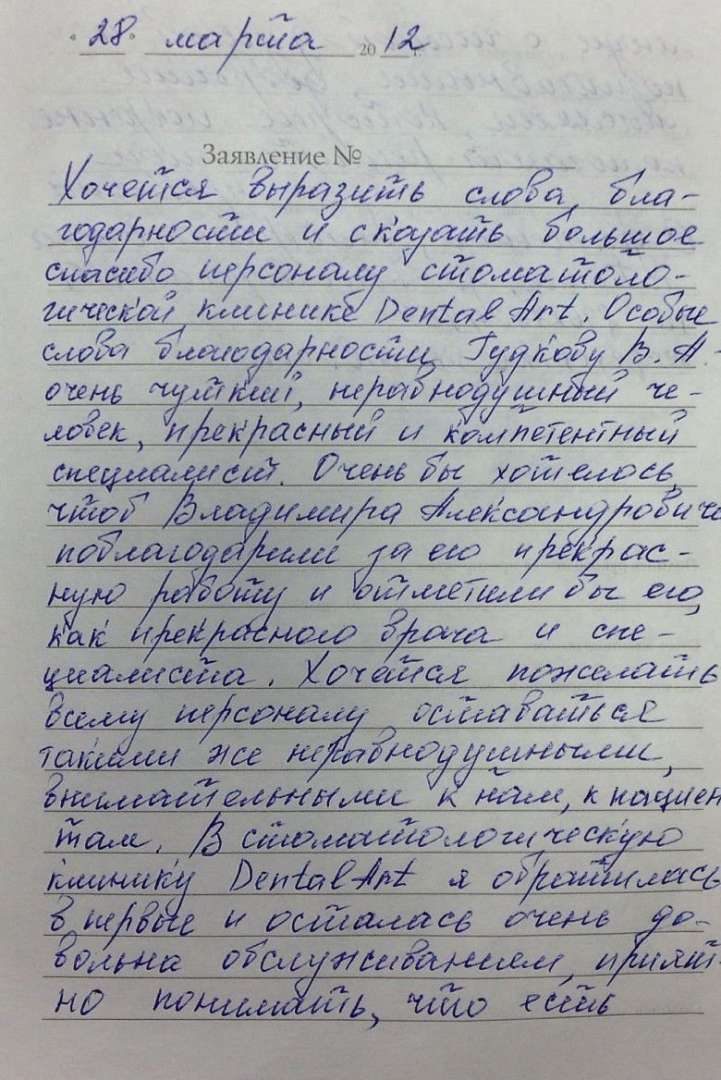 « 28 » марта 20 12 г.
Заявление №
Хочется выразить слова бла-
годарности и сказать большое
спасибо персоналу стоматоло-
гической клинике Dental Art. Особые
слова благодарности Гудкову В. А. -
очень чуткий, неравнодушный че-
ловек, прекрасный и компетентный
специалист. Очень бы хотелось,
чтоб Владимира Александровича
поблагодарили за его прекрас-
ную работу и отметили бы его,
как прекрасного врача и спе-
циалиста. Хочется пожелать
всему персоналу оставаться
такими же неравнодушными,
внимательными к нам, к пациен
там. В стоматологическую
клинику Dental Art я обратилась
в первые и осталась очень до-
вольна обслуживанием, прият-
но понимать, что есть